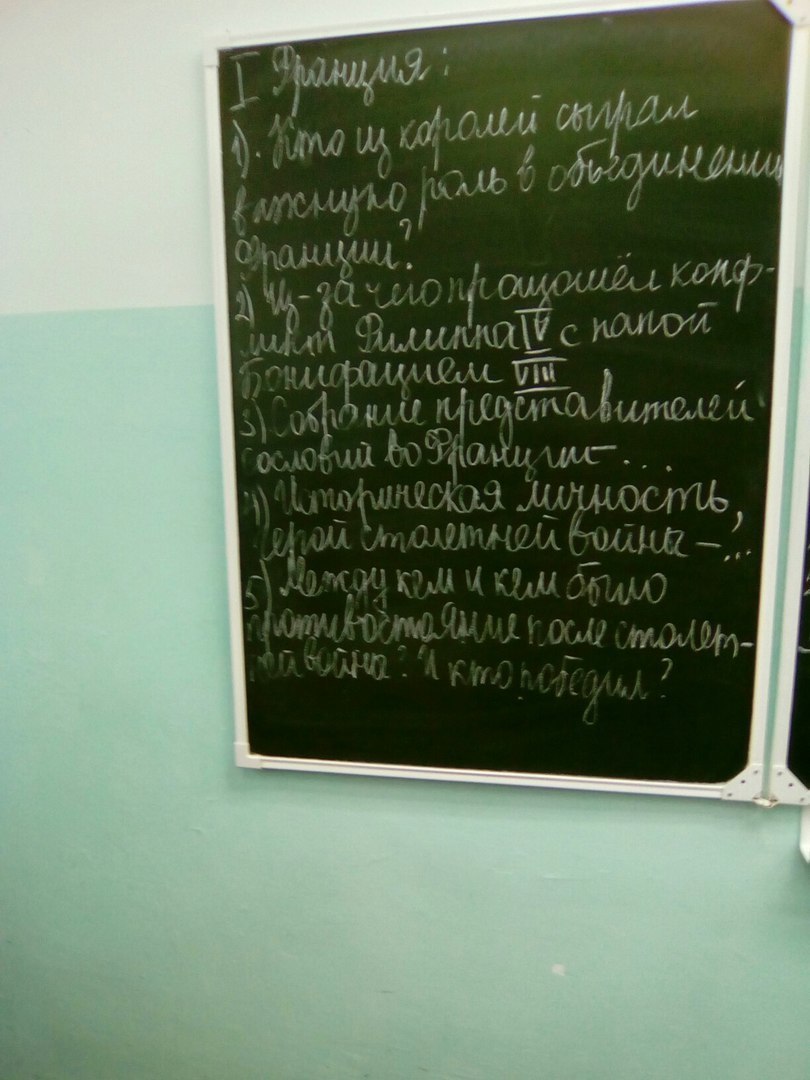 I Франция:
1). Кто из королей сыграл
важную роль в объединении
Франции?
2) Из-за чего произошёл конф-
ликт Филиппа IV с папой
Бонифацием VIII
3) Собрание представителей
сословий во Франции - ...
4) Историческая личность,
герой столетней войны - ...
5) Между кем и кем было
противостояние после столет-
ней война? И кто победил?